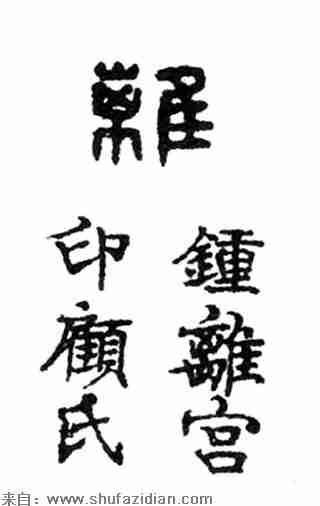 離
鍾離宮
印顧氏
来自：www.shufazidian.com